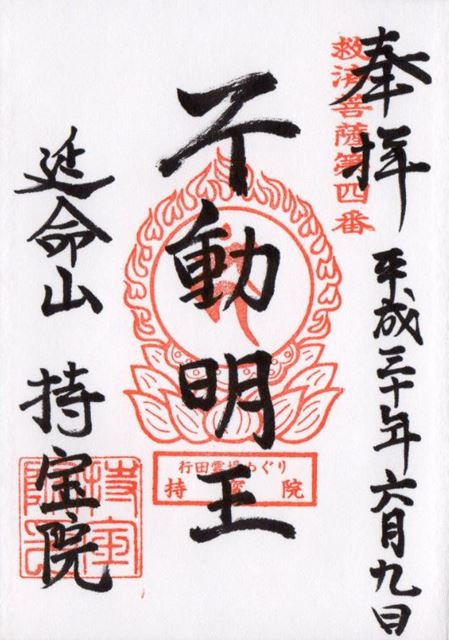 奉拝
平成三十年六月九日
救済菩薩第四番
不動明王
行田霊場めぐり
持宝院
延命山 持宝院